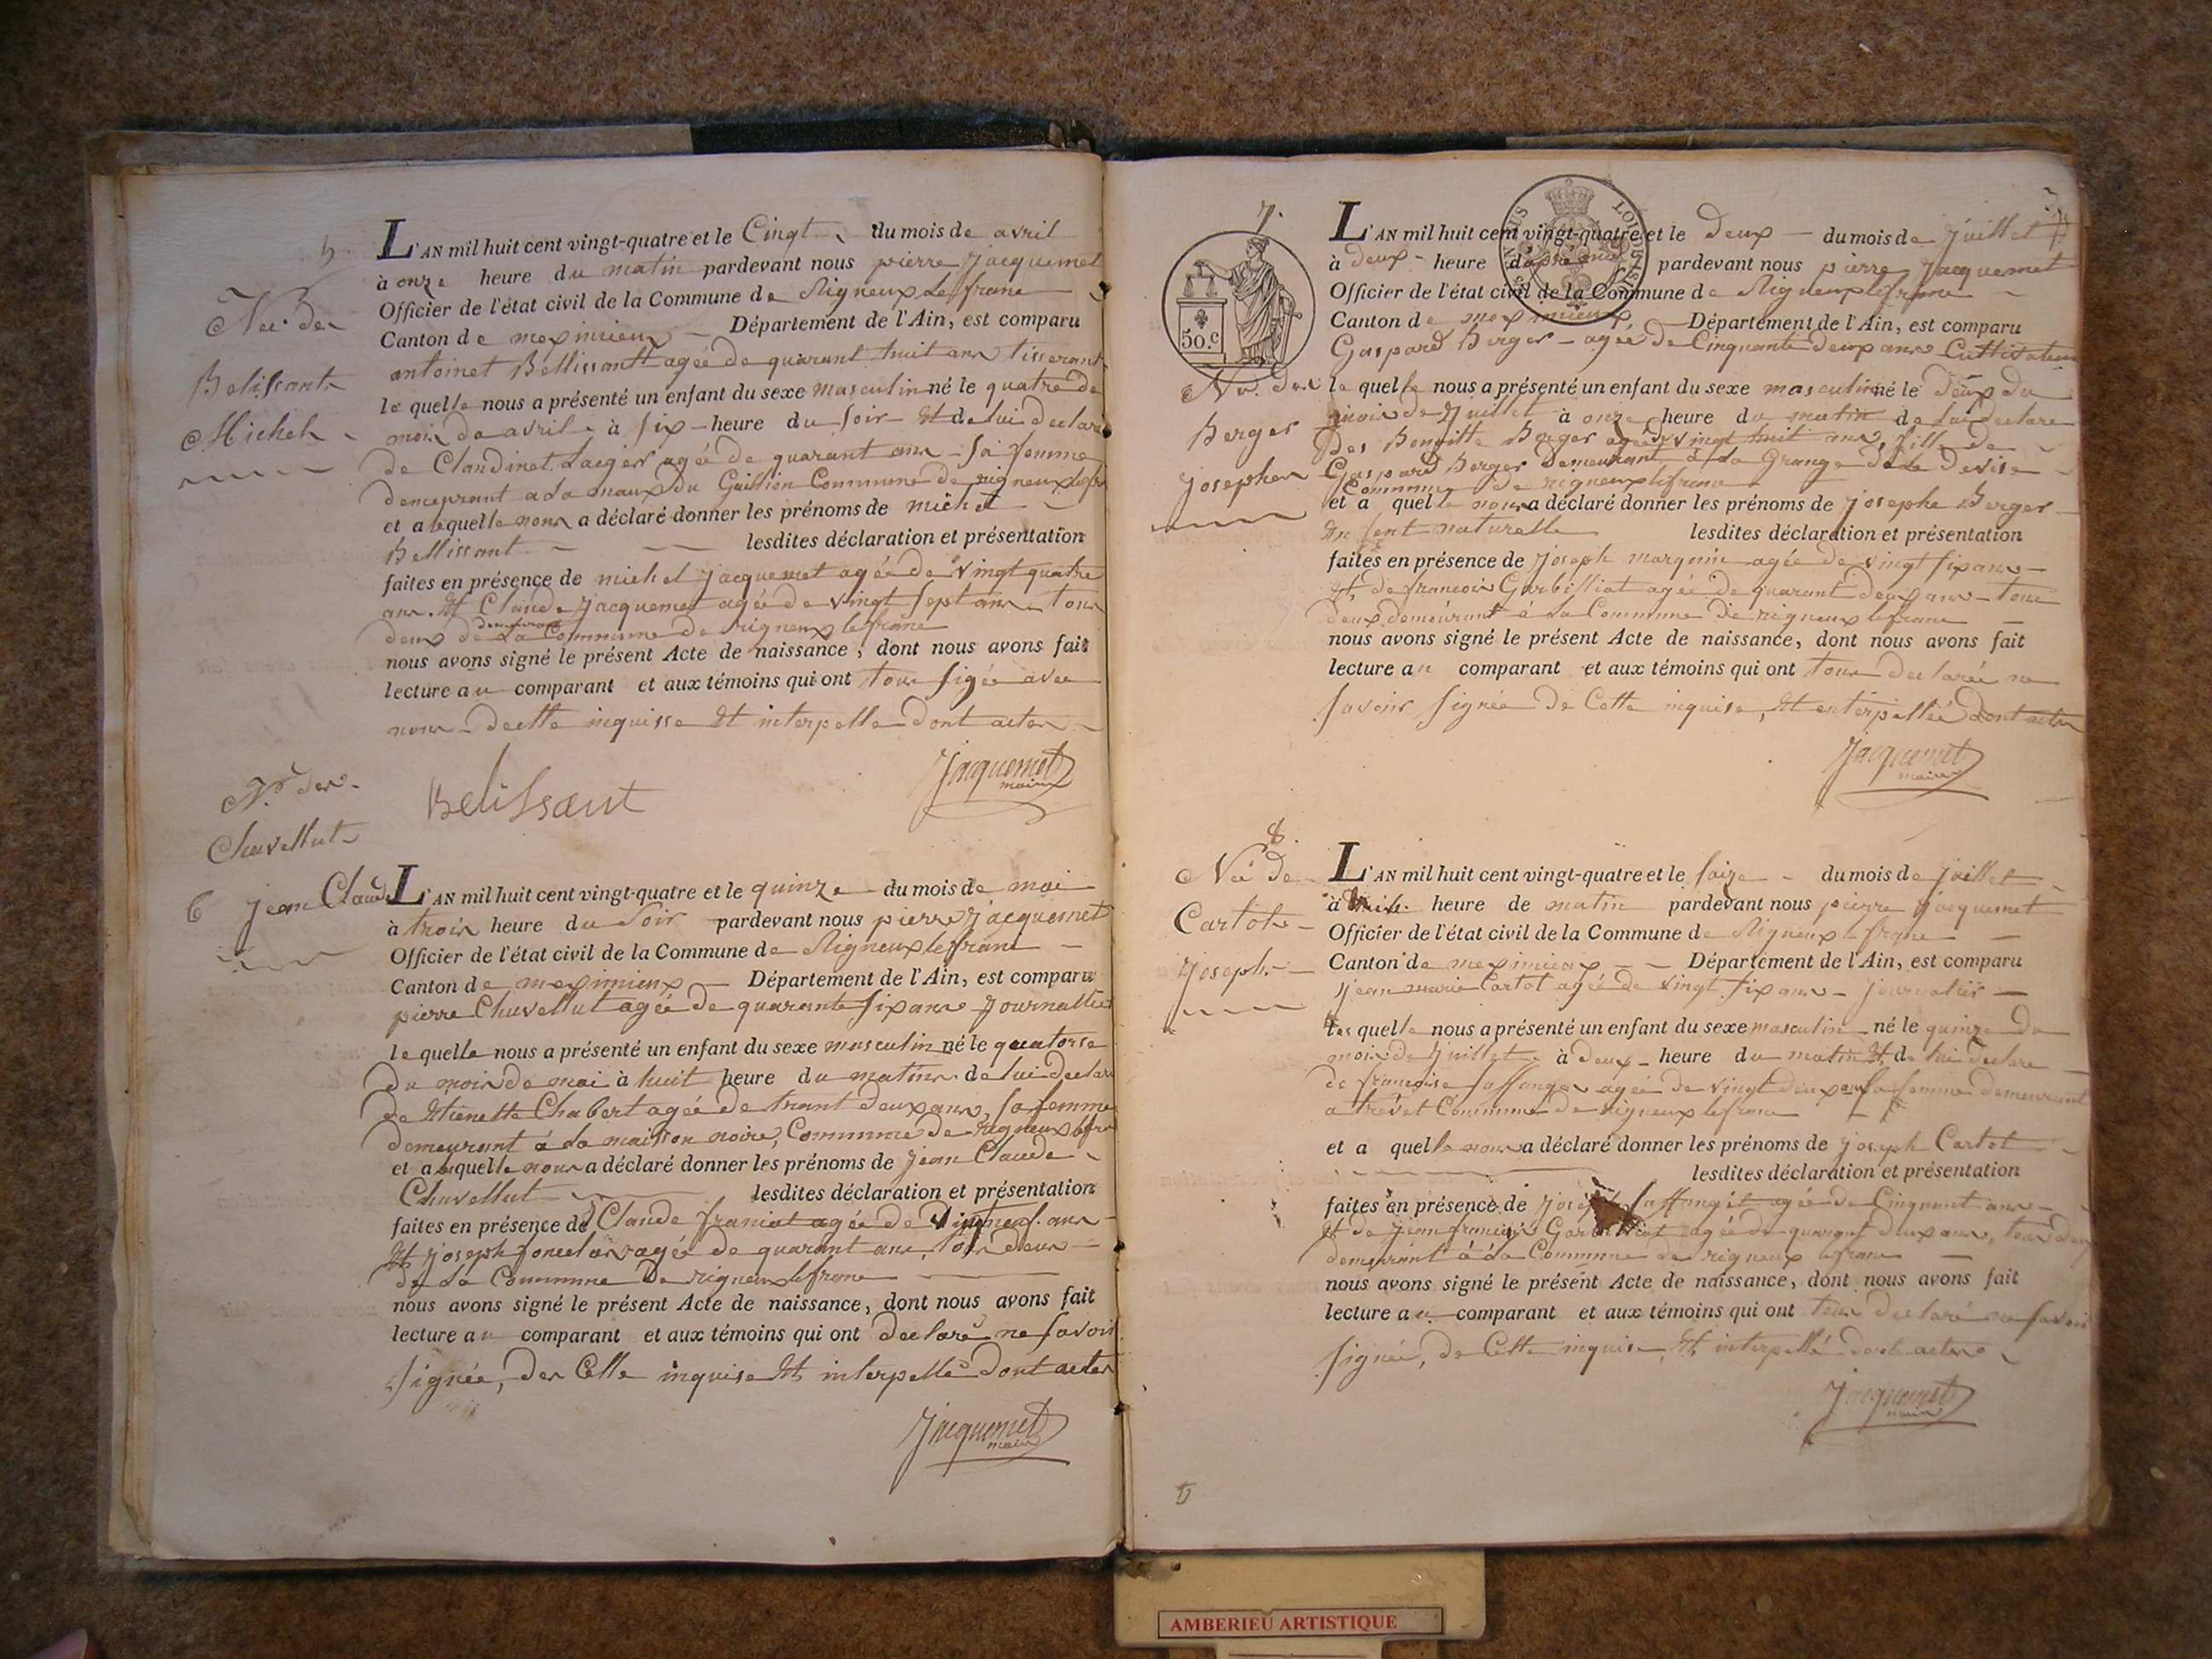 5.
Née de
Belissant
Michel
L'AN mil huit cent vingt-quatre et le Cinqt du mois de avril
à onze heure du matin pardevant nous pierre Jacquemet
Officier de l'état civil de la Commune de Rigneux Lefranc
Canton de meximieux Département de l'Ain, est comparu
antoinet Bellissantt agée de quarant huit ans tisserant
le quelle nous a présenté un enfant du sexe masculin né le quatre de
mois de avril à six heure du soir Et de lui declare
de Claudinet Laeger agée de quarant ans sa femme
demeurant a la Commune de rigneux lefr
et a laquelle nous a déclaré donner les prénoms de michel
Bellissant lesdites déclaration et présentation
faites en présence de michel Jacquemet agée de vingt quatre
ans Et Claude Jacquemet agée de vingt sept ans tous
deux demeurant de La Commune de rigneux lefranc
nous avons signé le présent Acte de naissance, dont nous avons fait
lecture au comparant et aux témoins qui ont tous sigée avec
nous decette inquisse Et interpelle Dont acte
Belissant
Jacquemet
maire
Né de
Chavellut
6 Jean Claude
L'AN mil huit cent vingt-quatre et le quinze du mois de mai
à trois heure du Soir pardevant nous pierre Jacquemet
Officier de l'état civil de la Commune de Rigneux lefranc
Canton de meximieux Département de l'Ain, est comparu
pierre Chavellut agée de quarante six ans Journallier
le quelle nous a présenté un enfant du sexe masculin né le quatorse
du mois de mai à huit heure du matin de lui declare
de Etienette Chabert agée de trant deux ans, sa femme
demeurant à la maison noire, Commune de rigneux lefra
et a laquelle nous a déclaré donner les prénoms de Jean Claude
Chavellut lesdites déclaration et présentation
faites en présence de Claude franiat agée de vingt neuf ans
Et Joseph agée de quarant ans, tous deux
de La Commune de rigneux lefranc
nous avons signé le présent Acte de naissance, dont nous avons fait
lecture au comparant et aux témoins qui ont declaré ne savoir
signée, de Cette inquise Et interpellé dont acte
Jacquemet
maire
7.
50.c
Né de
Berger
Josephe
L'AN mil huit cent vingt-quatre et le deux du mois de Juillet
à deux heure pardevant nous pierre Jacquemet
Officier de l'état civil de la Commune de Rigneux lefranc
Canton de meximieux Département de l'Ain, est comparu
Gaspard Berger agée de Cinquante deux ans Cultivateur
le quelle nous a présenté un enfant du sexe masculin né le deux du
mois de Juillet à onze heure du matin de lui declare
Des Benoitte Berger agée de vingt huit ans, fille de
Gaspard Berger Demeurant à La Grange de la Devise
Commune de rigneux lefranc
et a quelle nous a déclaré donner les prénoms de Josephe Berger
naturelle lesdites déclaration et présentation
faites en présence de Joseph marquin agée de vingt six ans
Et, de francois Garbilliat agée de quarant deux ans tous
deux demeurant à La Commune de rigneux lefranc
nous avons signé le présent Acte de naissance, dont nous avons fait
lecture au comparant et aux témoins qui ont tous declarée ne
savoir signée De Cette inquise, Et enterpellée Dont acte
Jacquemet
maire
8.
Née de
Cartot
Joseph
L'AN mil huit cent vingt-quatre et le saize du mois de Juillet
à heure de matin pardevant nous pierre Jacquemet
Officier de l'état civil de la Commune de Rigneux lefranc
Canton de meximieux Département de l'Ain, est comparu
Jean marie Cartot agée de vingt six ans journalier
les quelle nous a présenté un enfant du sexe masculin né le quinze du
mois de Juillet à deux heure du matin Et, de lui declare
de francoise agée de vingt deux ans sa femme demeurant
a Commune de rigneux lefranc
et a quelle nous a déclaré donner les prénoms de Joseph Cartot
lesdites déclaration et présentation
faites en présence de Joseph agée de Cinquant ans
Et de Jean francois agée de quarant deux ans, tous deux
demeurant à La Commune de rigneux lefranc
nous avons signé le présent Acte de naissance, dont nous avons fait
lecture au comparant et aux témoins qui ont tous declaré ne savoir
signée, de Cette inquise, Et, interpellé dont acte
Jacquemet
maire
AMBERIEU ARTISTIQUE